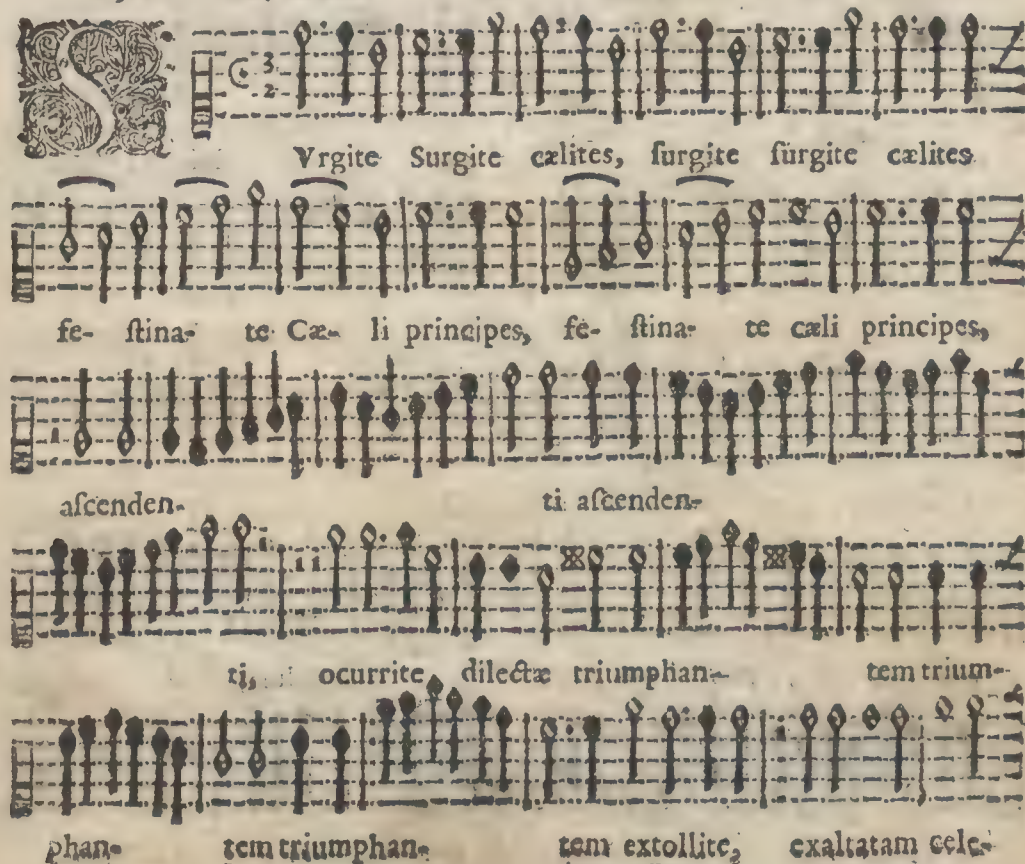 SVrgite Surgite cælites, ſurgite ſurgite cælites
fe- ſtina- te Cæ- li principes, fe- ſtina- te cæli principes,
aſcenden- ti aſcenden-
ti, ocurrite dilectæ triumphan- tem trium-
phan- tem triumphan- tem extollite, exaltatam cele-